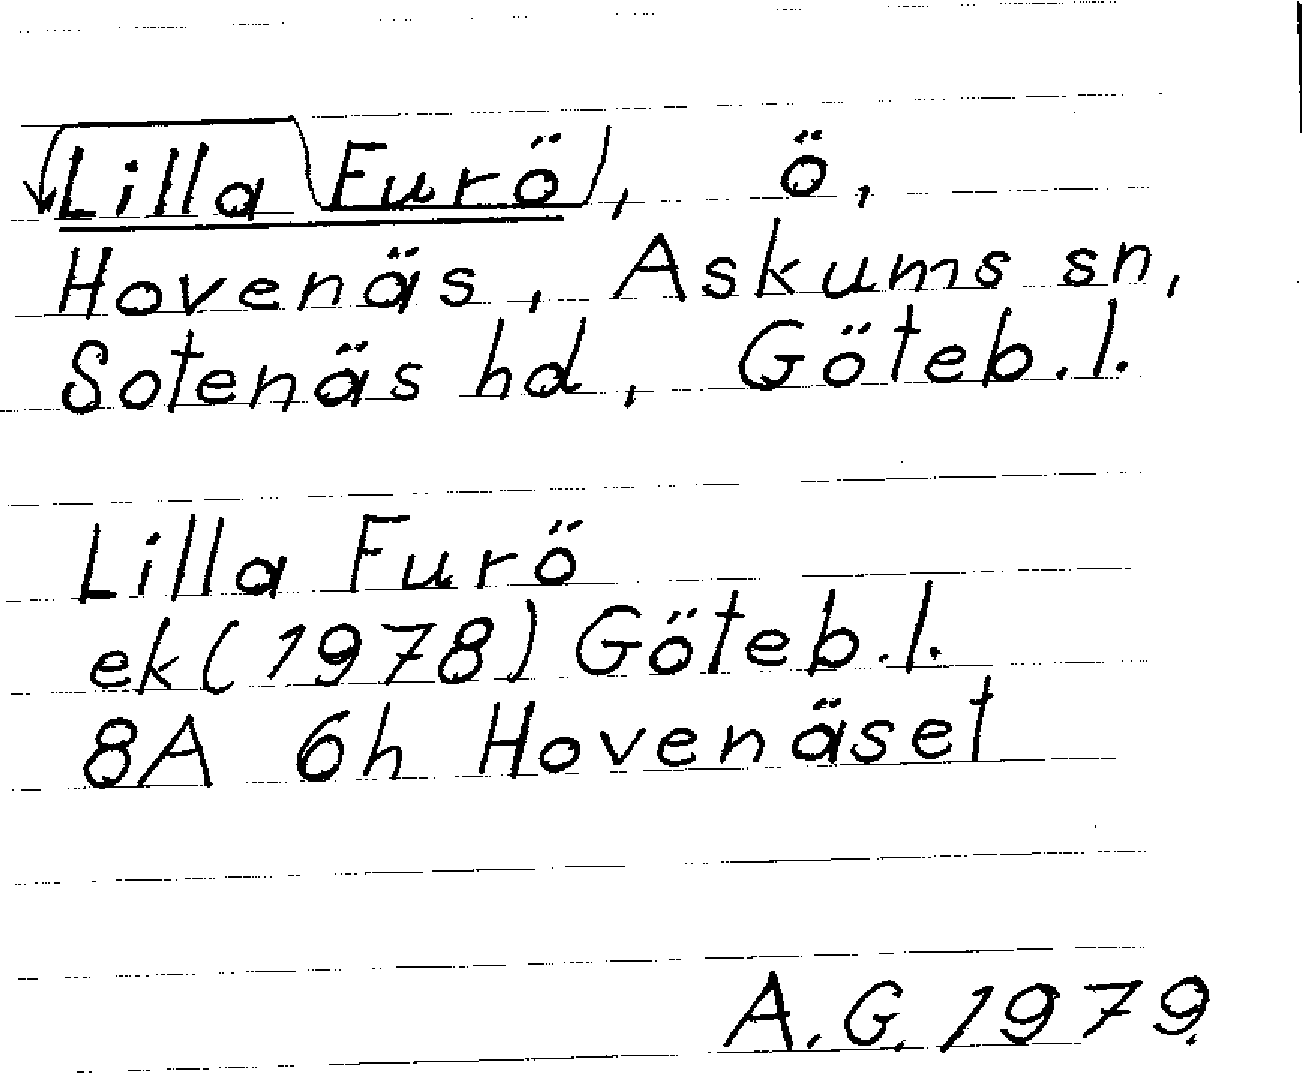 Lilla Furö, ö,
Hovenäs, Askums sn,
Sotenäs hd, Göteb.l.
Lilla Furö
ek(1978) Göteb.l.
8A 6h Hovenäset
A.G. 1979.